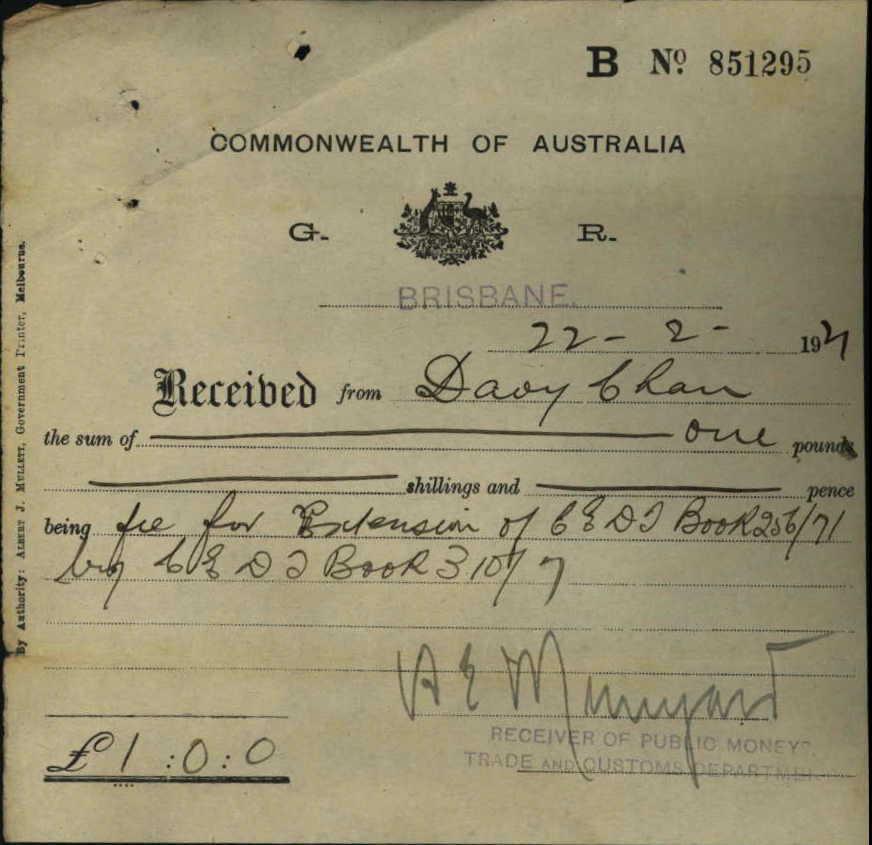 B Nº 851295
COMMONWEALTH OF AUSTRALIA
G. R.
BRISBANE.
22-2-1921
Received from Davy Chan
the sum of one pounds
shillings and pence
being fee for Extension of CEDT Book 256/71
by CEDT Book 310/7
£1:0:0
RECEIVER OF PUBLIC MONEYS
TRADE AND CUSTOMS DEPARTMEN
By Authority: ALBERT J. MULLETT, Government Printer, Melbourne.